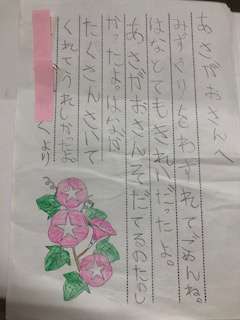 あさがおさんへ
みずくりをわすれてごめんね。
はなとてもきれいだったよ。
あさがおさんそだてるのたのし
かったよ。はなが
たくさんさいて
くれてうれしかったお
くより